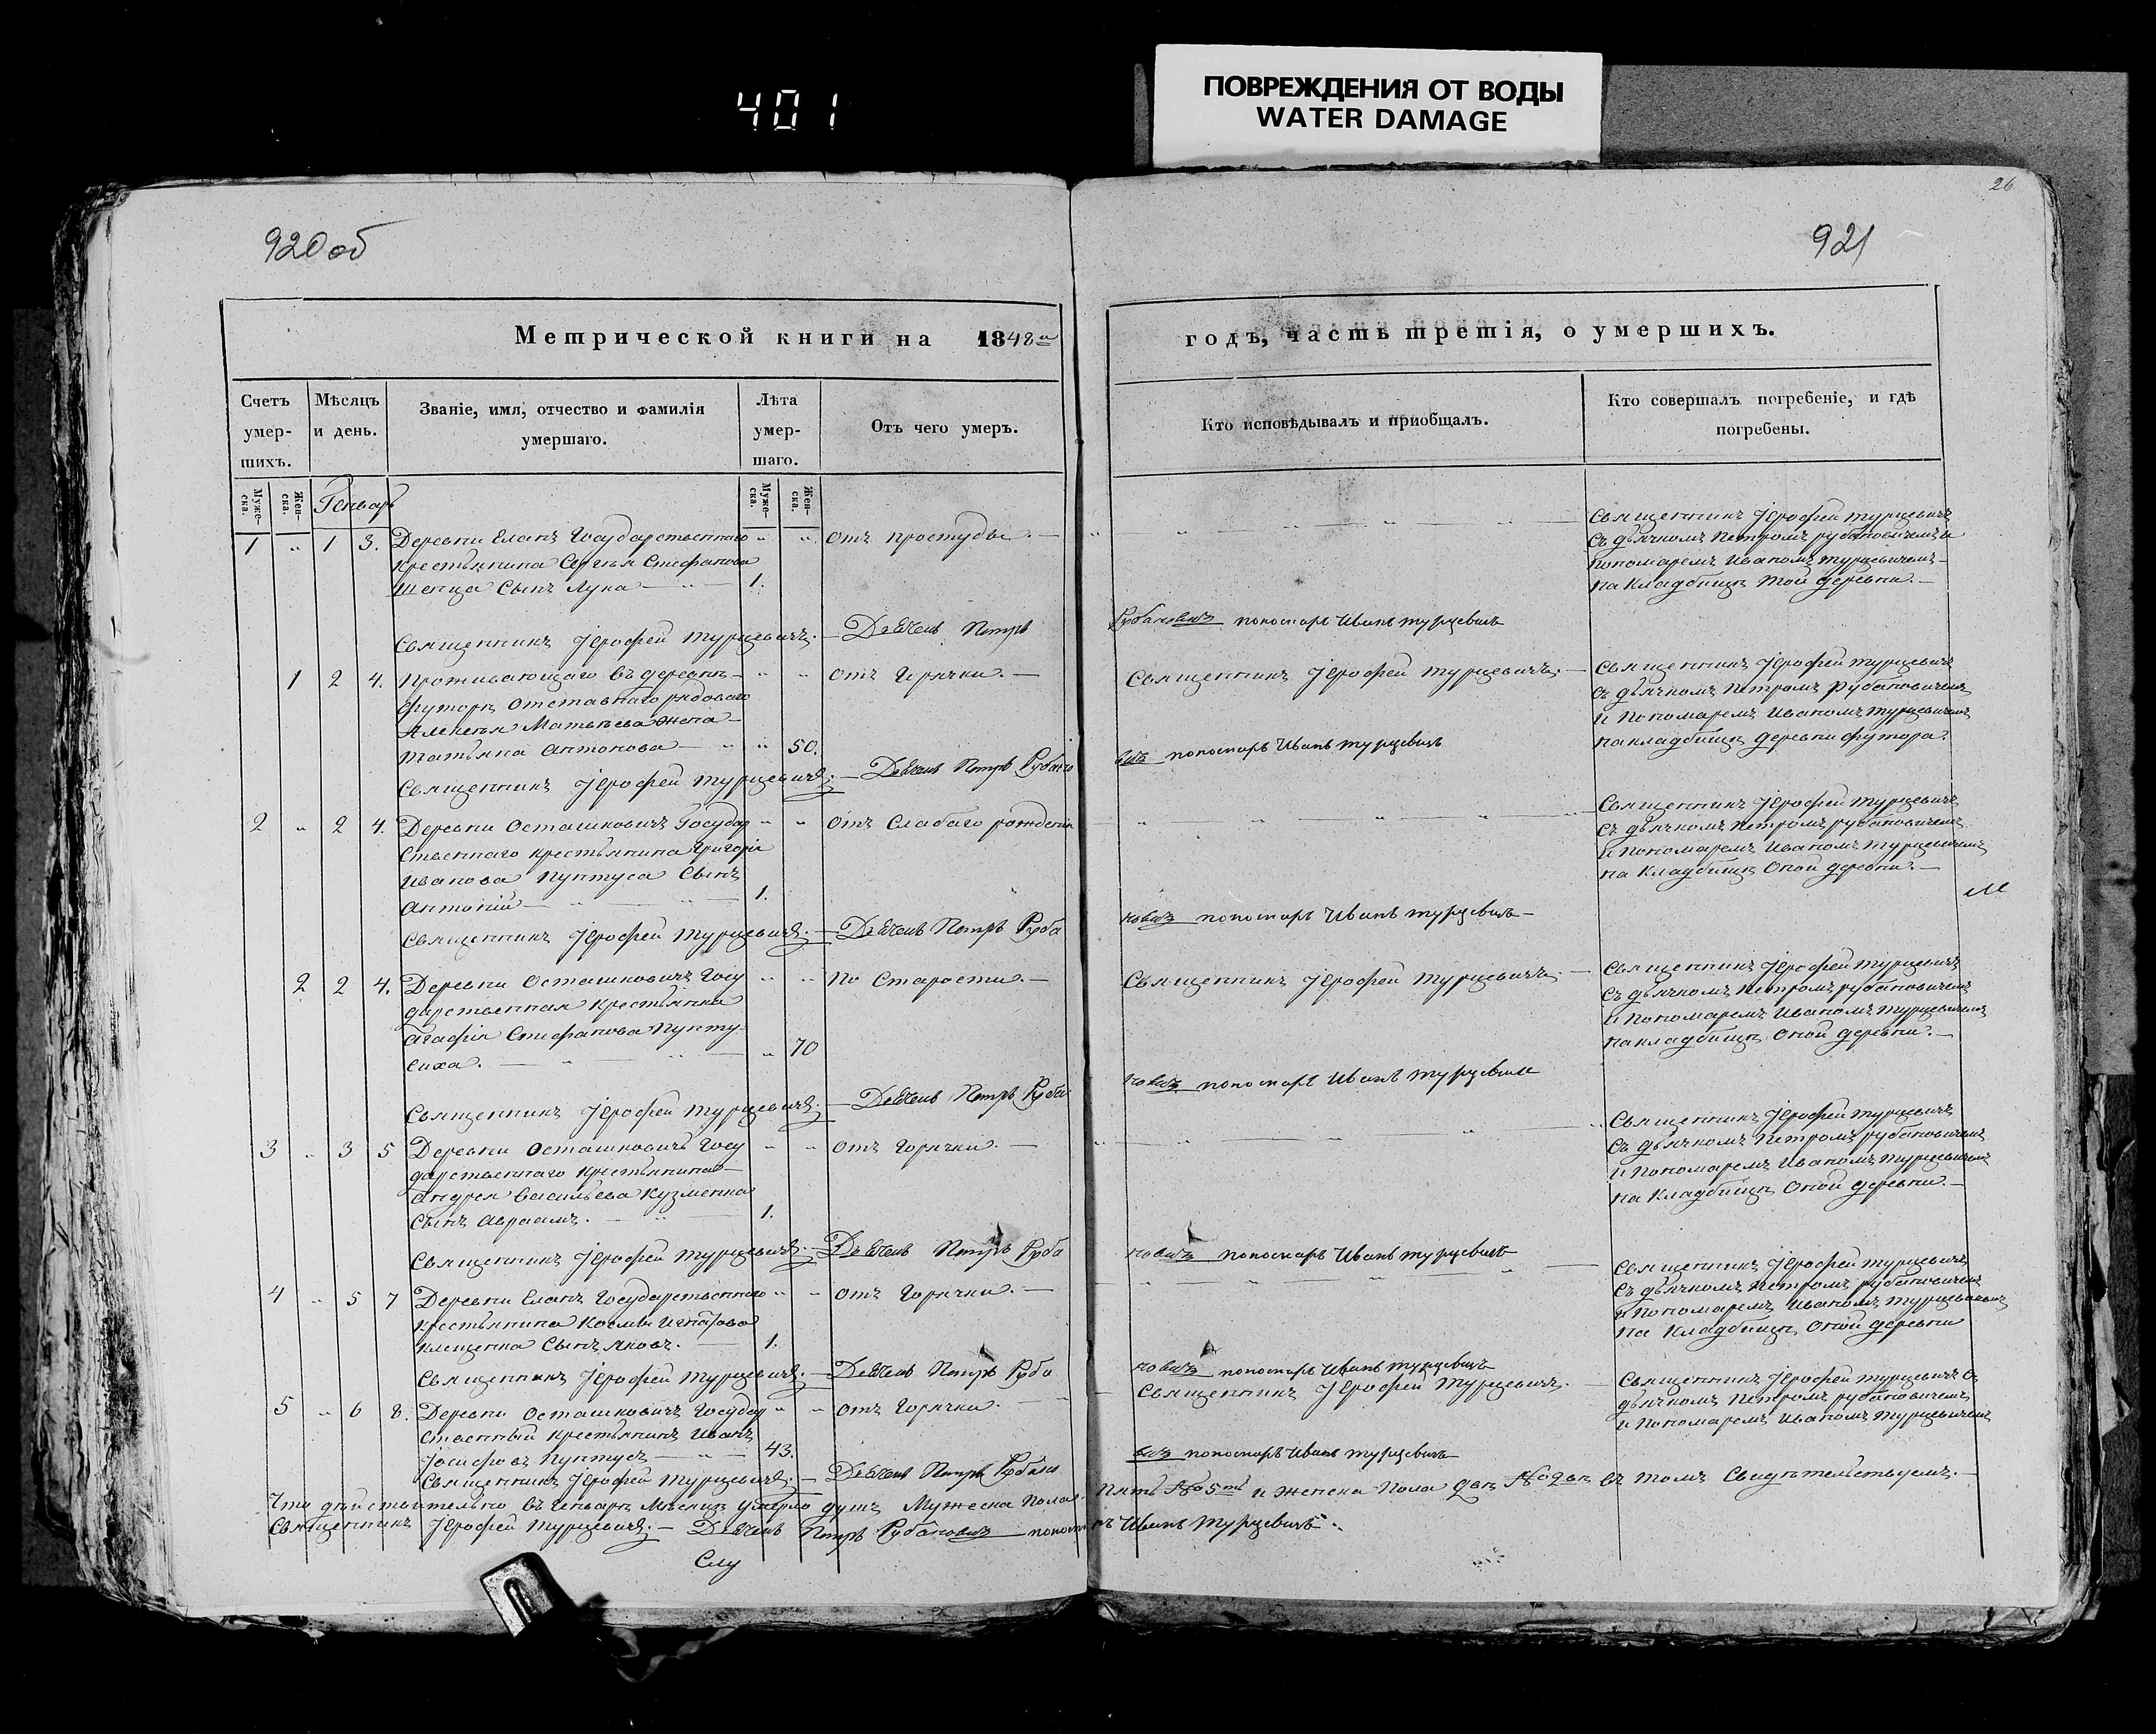 401
ПОВРЕЖДЕНИЯ ОТ ВОДЫ
WATER DAMAGE
26
920 об
921
Метрической книги на 1848й
годъ, часть третія, о умершихъ.
Счетъ умер-шихъ.
Мѣсяцъ и день.
Званіе, имя, отчество и фамилія умершаго.
Лѣта умер-шаго.
Отъ чего умеръ.
Кто исповѣдывалъ и пріобщалъ.
Кто совершалъ погребеніе, и гдѣ погребены.
Муже-ска.
Жен-ска.
Генварь
Муже-ска.
Жен-ска.
1 " 1 3. Деревни Еланъ Государственнаго " " отъ простуды.
крестьянина Сергѣя Стефанова
Шенца Сынъ Лука 1.
Священникъ Іерофей Турцевичъ
Съ дьячкомъ Петромъ Рубановичемъ и
пономаремъ Иваномъ Турцевичемъ
на Кладбищѣ той деревни.
Священникъ Іерофей Турцевичъ. Дьячекъ Петръ Рубановичъ пономарь Иванъ Турцевичъ
1 2 4. Проживающаго въ деревнѣ " " отъ Горячки.
Футорѣ отставнаго рядоваго
Алексѣя Матвѣева жена
Татьяна Антонова " 50.
Священникъ Іерофей Турцевичъ.
Священникъ Іерофей Турцевичъ
съ дьячкомъ Петромъ Рубановичемъ
и Пономаремъ Иваномъ Турцевичемъ
на кладбищѣ деревни футора.
Священникъ Іерофей Турцевичъ. Дьячекъ Петръ Рубановичъ пономарь Иванъ Турцевичъ
2 " 2 4. Деревни Осташковичъ Государ " " отъ Слабаго рожденія
ственнаго крестьянина Григорія
Иванова Пунтуса Сынъ
Антоній 1.
Священникъ Іерофей Турцевичъ
Съ дьячкомъ Петромъ Рубановичемъ
и Пономаремъ Иваномъ Турцевичемъ
на Кладбищѣ Оной деревни.
Священникъ Іерофей Турцевичъ. Дьячекъ Петръ Рубановичъ пономарь Иванъ Турцевичъ
2 2 4. Деревни Осташковичъ Госу " " По Старости.
дарственная крестьянка
Агафія Стефанова Пунту-
сиха. " 70
Священникъ Іерофей Турцевичъ.
Священникъ Іерофей Турцевичъ
Съ дьячкомъ Петромъ Рубановичемъ
и Пономаремъ Иваномъ Турцевичемъ
на кладбищѣ Оной деревни.
Священникъ Іерофей Турцевичъ. Дьячекъ Петръ Рубановичъ пономарь Иванъ Турцевичъ
3 " 3 5 Деревни Осташковичъ Госу " " отъ Горячки.
дарственнаго крестьянина
Андрея Васильева Кузменка
Сынъ Авраамъ. 1.
Священникъ Іерофей Турцевичъ
Съ дьячкомъ Петромъ Рубановичемъ
и Пономаремъ Иваномъ Турцевичемъ
на Кладбищѣ Оной деревни.
Священникъ Іерофей Турцевичъ. Дьячекъ Петръ Рубановичъ пономарь Иванъ Турцевичъ
4 " 5 7 Деревни Еланъ Государственнаго " " отъ Горячки.
крестьянина Космы Игнатова
Клещенка Сынъ Яковъ. 1.
Священникъ Іерофей Турцевичъ
Съ дьячкомъ Петромъ Рубановичемъ
и Пономаремъ Иваномъ Турцевичемъ
На Кладбищѣ Оной деревни
Священникъ Іерофей Турцевичъ. Дьячекъ Петръ Рубановичъ пономарь Иванъ Турцевичъ
5 " 6 8. Деревни Осташковичъ Государ " " отъ Горячки.
ственный крестьянинъ Иванъ
Іосифовъ Пунтусъ 43.
Священникъ Іерофей Турцевичъ.
Священникъ Іерофей Турцевичъ Съ
дьячкомъ Петромъ Рубановичемъ
и Пономаремъ Иваномъ Турцевичемъ
Священникъ Іерофей Турцевичъ. Дьячекъ Петръ Рубановичъ пономарь Иванъ Турцевичъ
Что дѣйствительно въ Генварѣ Мѣсяцѣ умерло душъ Мужеска Пола Пять №5ть и Женска Пола двѣ №2вѣ въ томъ Свидѣтельствуемъ.
Священникъ Іерофей Турцевичъ. Дьячекъ Петръ Рубановичъ пономарь Иванъ Турцевичъ.
Слу